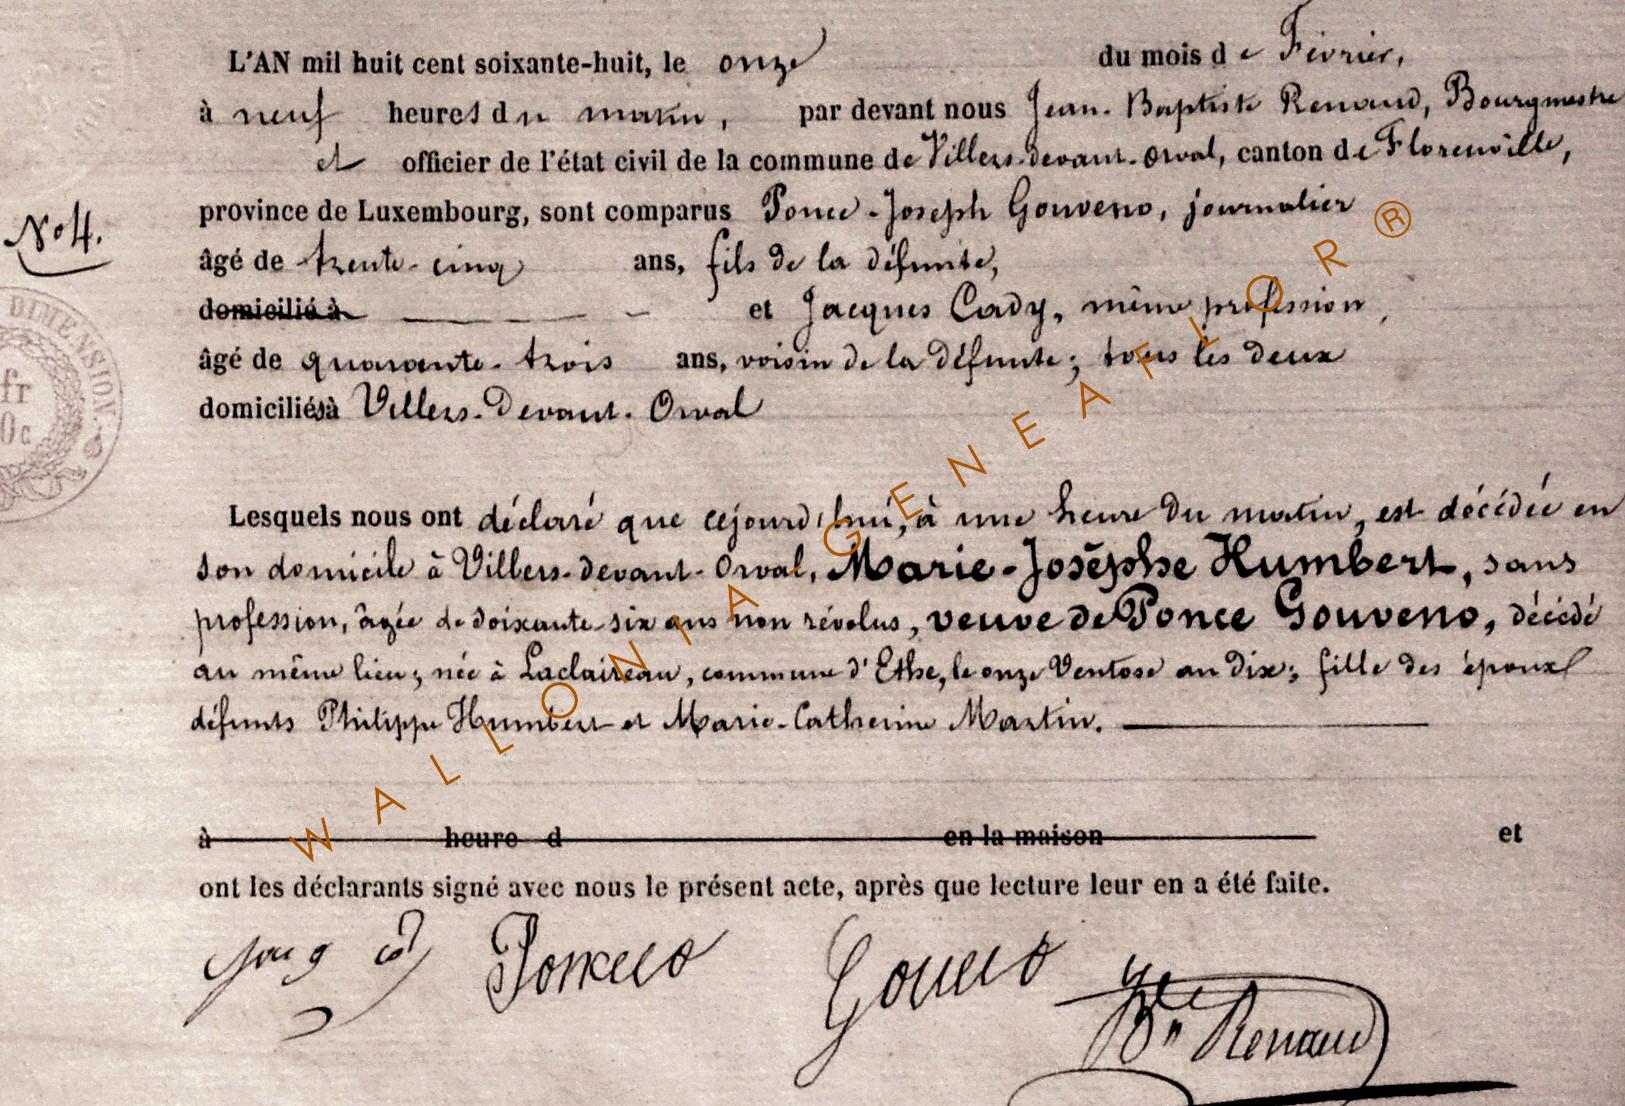 L'AN mil huit cent soixante-huit, le onze du mois de Février,
à neuf heures du matin, par devant nous Jean-Baptiste Renaud, Bourgmestre
et officier de l'état civil de la commune de Villers-devant-Orval, canton de Florenville,
province de Luxembourg, sont comparus Ponce-Joseph Gouveno, journalier
No 4.
âgé de trente-cinq ans, fils de la défunte,
domicilié à et Jacques Cady, même profession,
âgé de quarante-trois ans, voisin de la défunte; tous les deux
domiciliés à Villers-Devant-Orval
DIMENSION.
fr
0c
Lesquels nous ont déclaré que cejourd'hui, à une heure du matin, est décédée en
son domicile à Villers-devant-Orval, Marie-Josèphe Humbert, sans
profession, âgée de soixante-six ans non révolus, veuve de Ponce Gouveno, décédé
au même lieu; née à Laclaireau, commune d'Ethe, le onze Ventose an dix; fille des époux
défunts Philippe Humbert et Marie-Catherine Martin.
à heure d en la maison et
ont les déclarants signé avec nous le présent acte, après que lecture leur en a été faite.
Gouveno Bte Renaud
WALLONIA GENEAFLOR ®